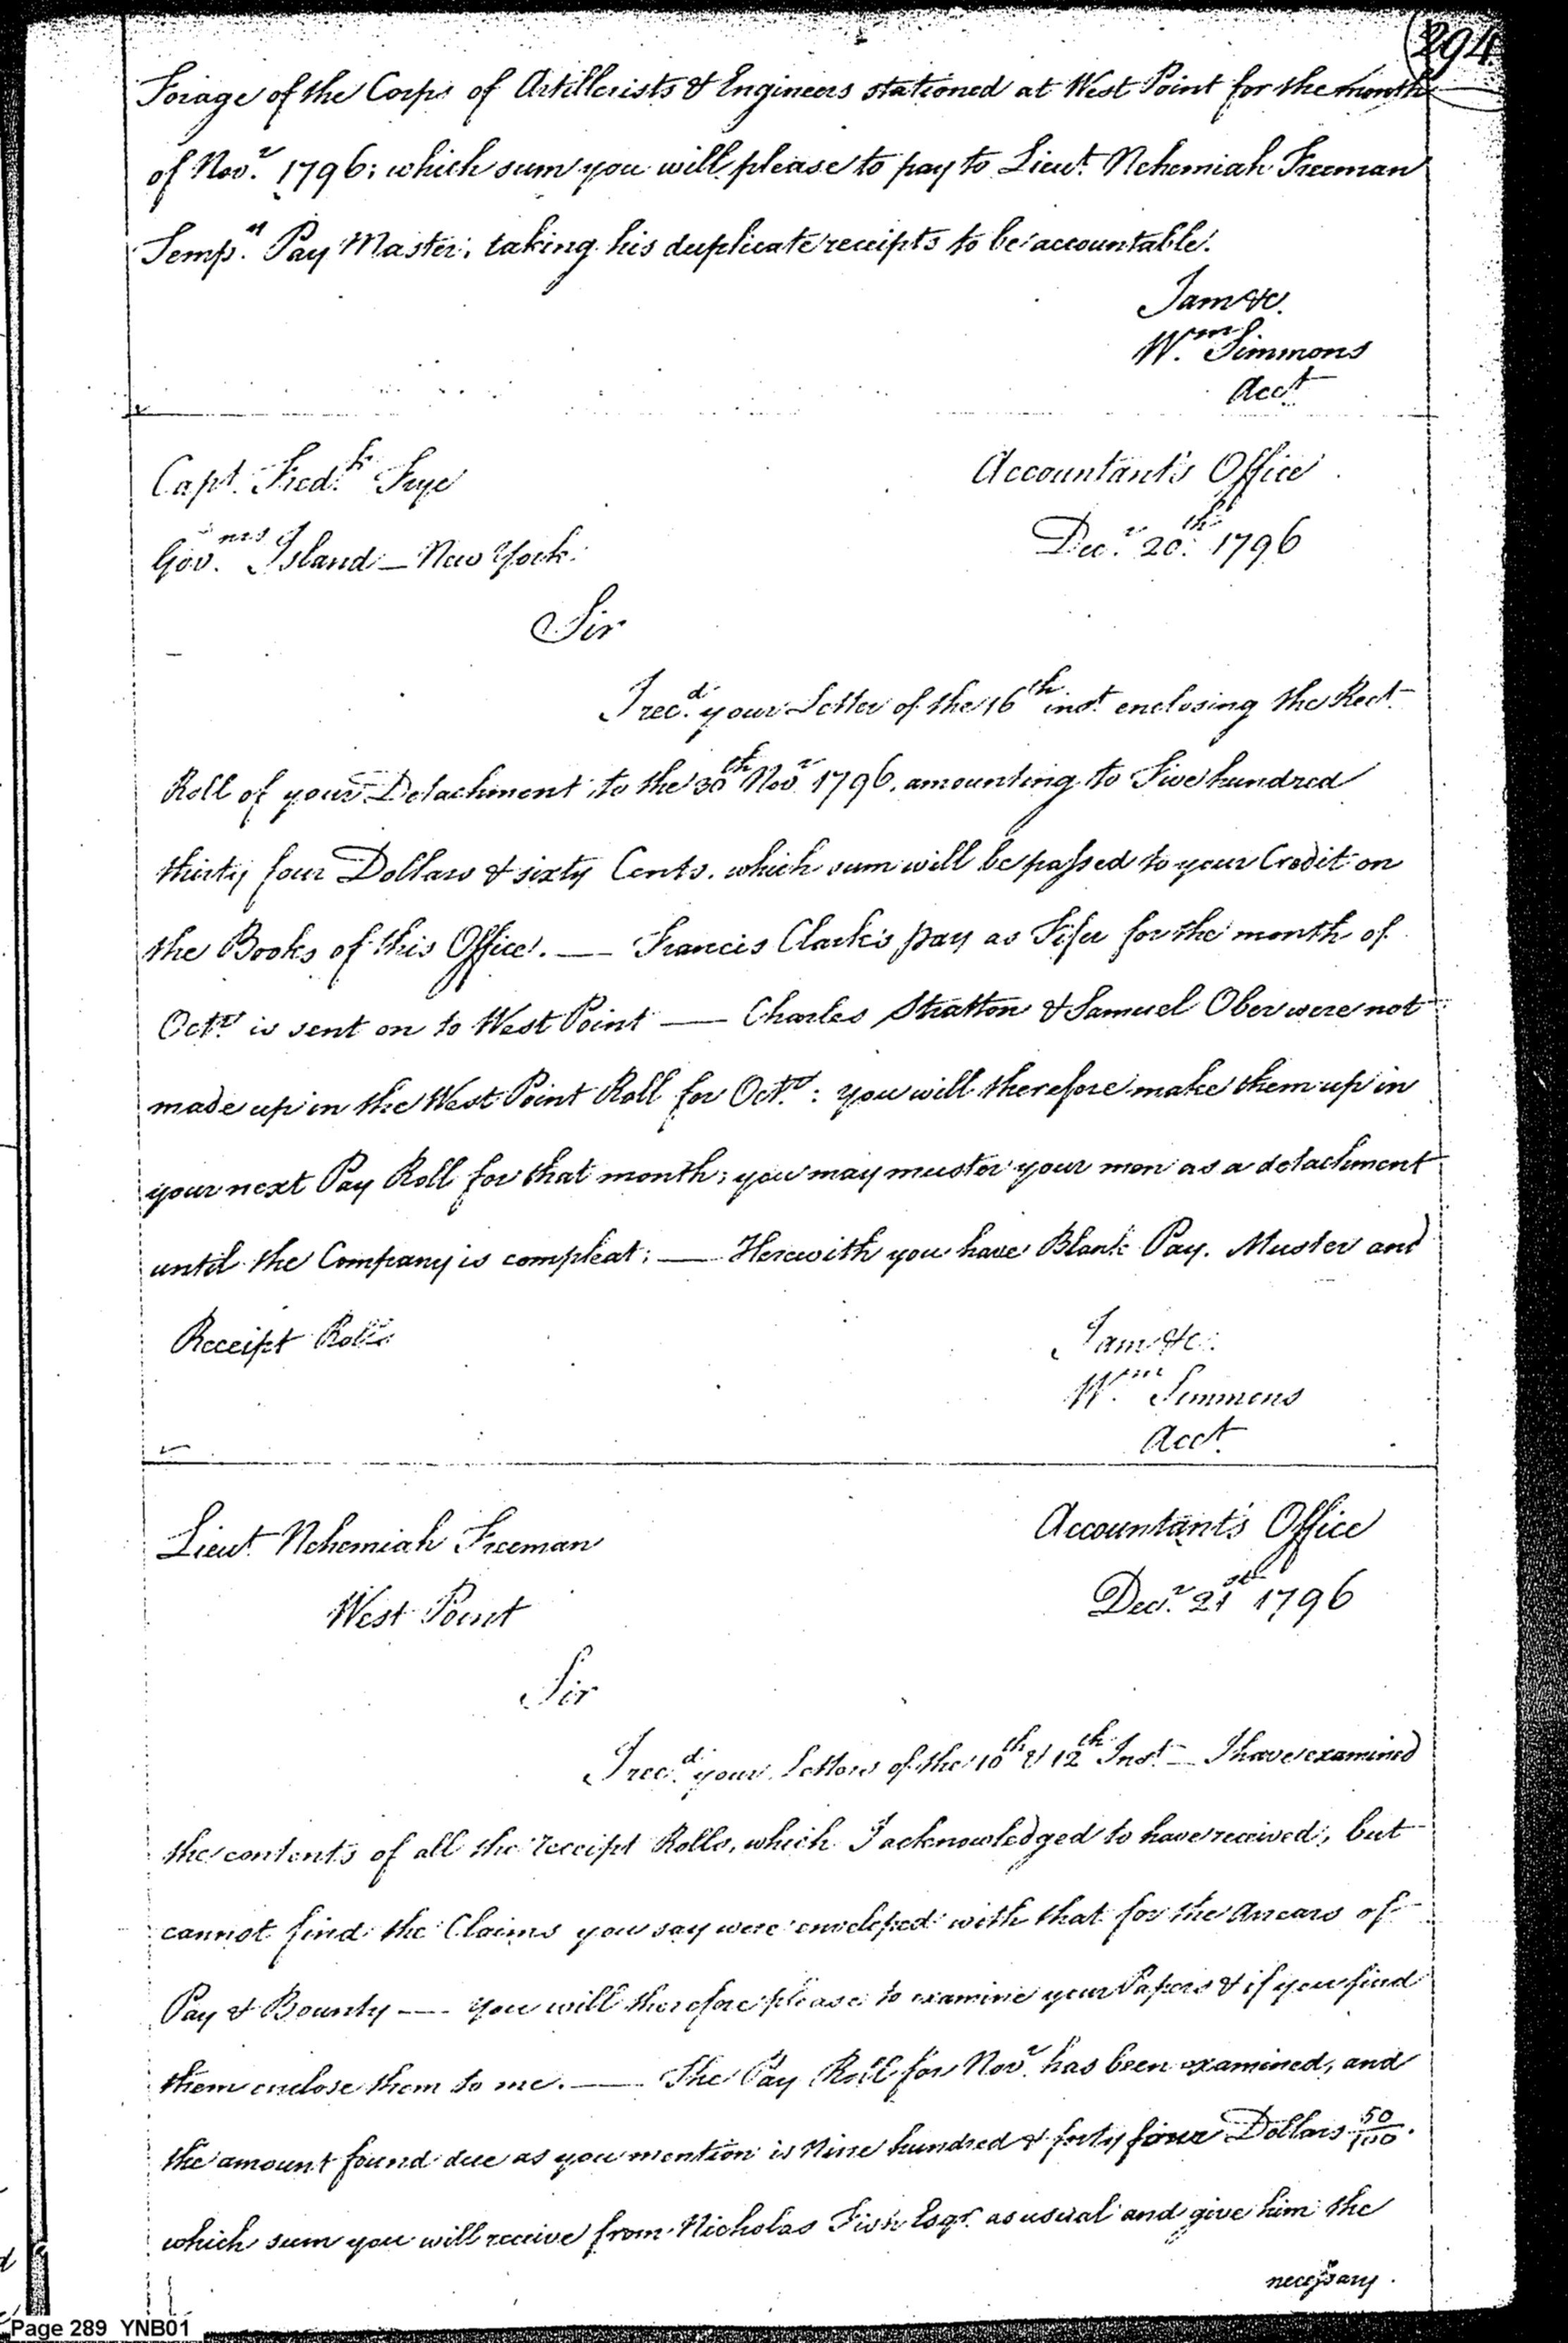 294
Forage of the Corps of Artillerists & Engineers stationed at West Point for the month
of Novr. 1796; which sum you will please to pay to Lieut. Nehemiah Freeman
Tempy. Pay Master, taking his duplicate receipts to be accountable.
I am &c.
Wm. Simmons
Acct.
Capt. Fredk. Frye
Accountant's Office
Govnrs. Island — New York.
Decr. 20th. 1796
Sir
I recd. your Letter of the 16th inst. enclosing the Rect.
Roll of your Detachment to the 30th Novr. 1796, amounting to Five hundred
thirty four Dollars & sixty Cents, which sum will be passed to your Credit on
the Books of this Office. — Francis Clark's pay as Fifer for the month of
Octr. is sent on to West Point — Charles Stratton & Samuel Ober were not
made up in the West Point Roll for Octr.: you will therefore make them up in
your next Pay Roll for that month; you may muster your men as a detachment
until the Company is compleat; — Herewith you have Blank Pay, Muster and
Receipt Rolls
I am &c.
Wm. Simmons
Acct.
Lieut. Nehemiah Freeman
Accountant's Office
West Point
Decr. 21st 1796
Sir
I recd. your Letters of the 10th & 12th Inst. — I have examined
the contents of all the receipt Rolls, which I acknowledged to have received, but
cannot find the Claims you say were enveloped with that for the Arrears of
Pay & Bounty — you will therefore please to examine your Papers & if you find
them enclose them to me. — The Pay Roll for Novr. has been examined, and
the amount found due as you mention is Nine hundred & forty four Dollars 50/100.
which sum you will receive from Nicholas Fish Esqr. as usual and give him the
necessary.
Page 289 YNB01